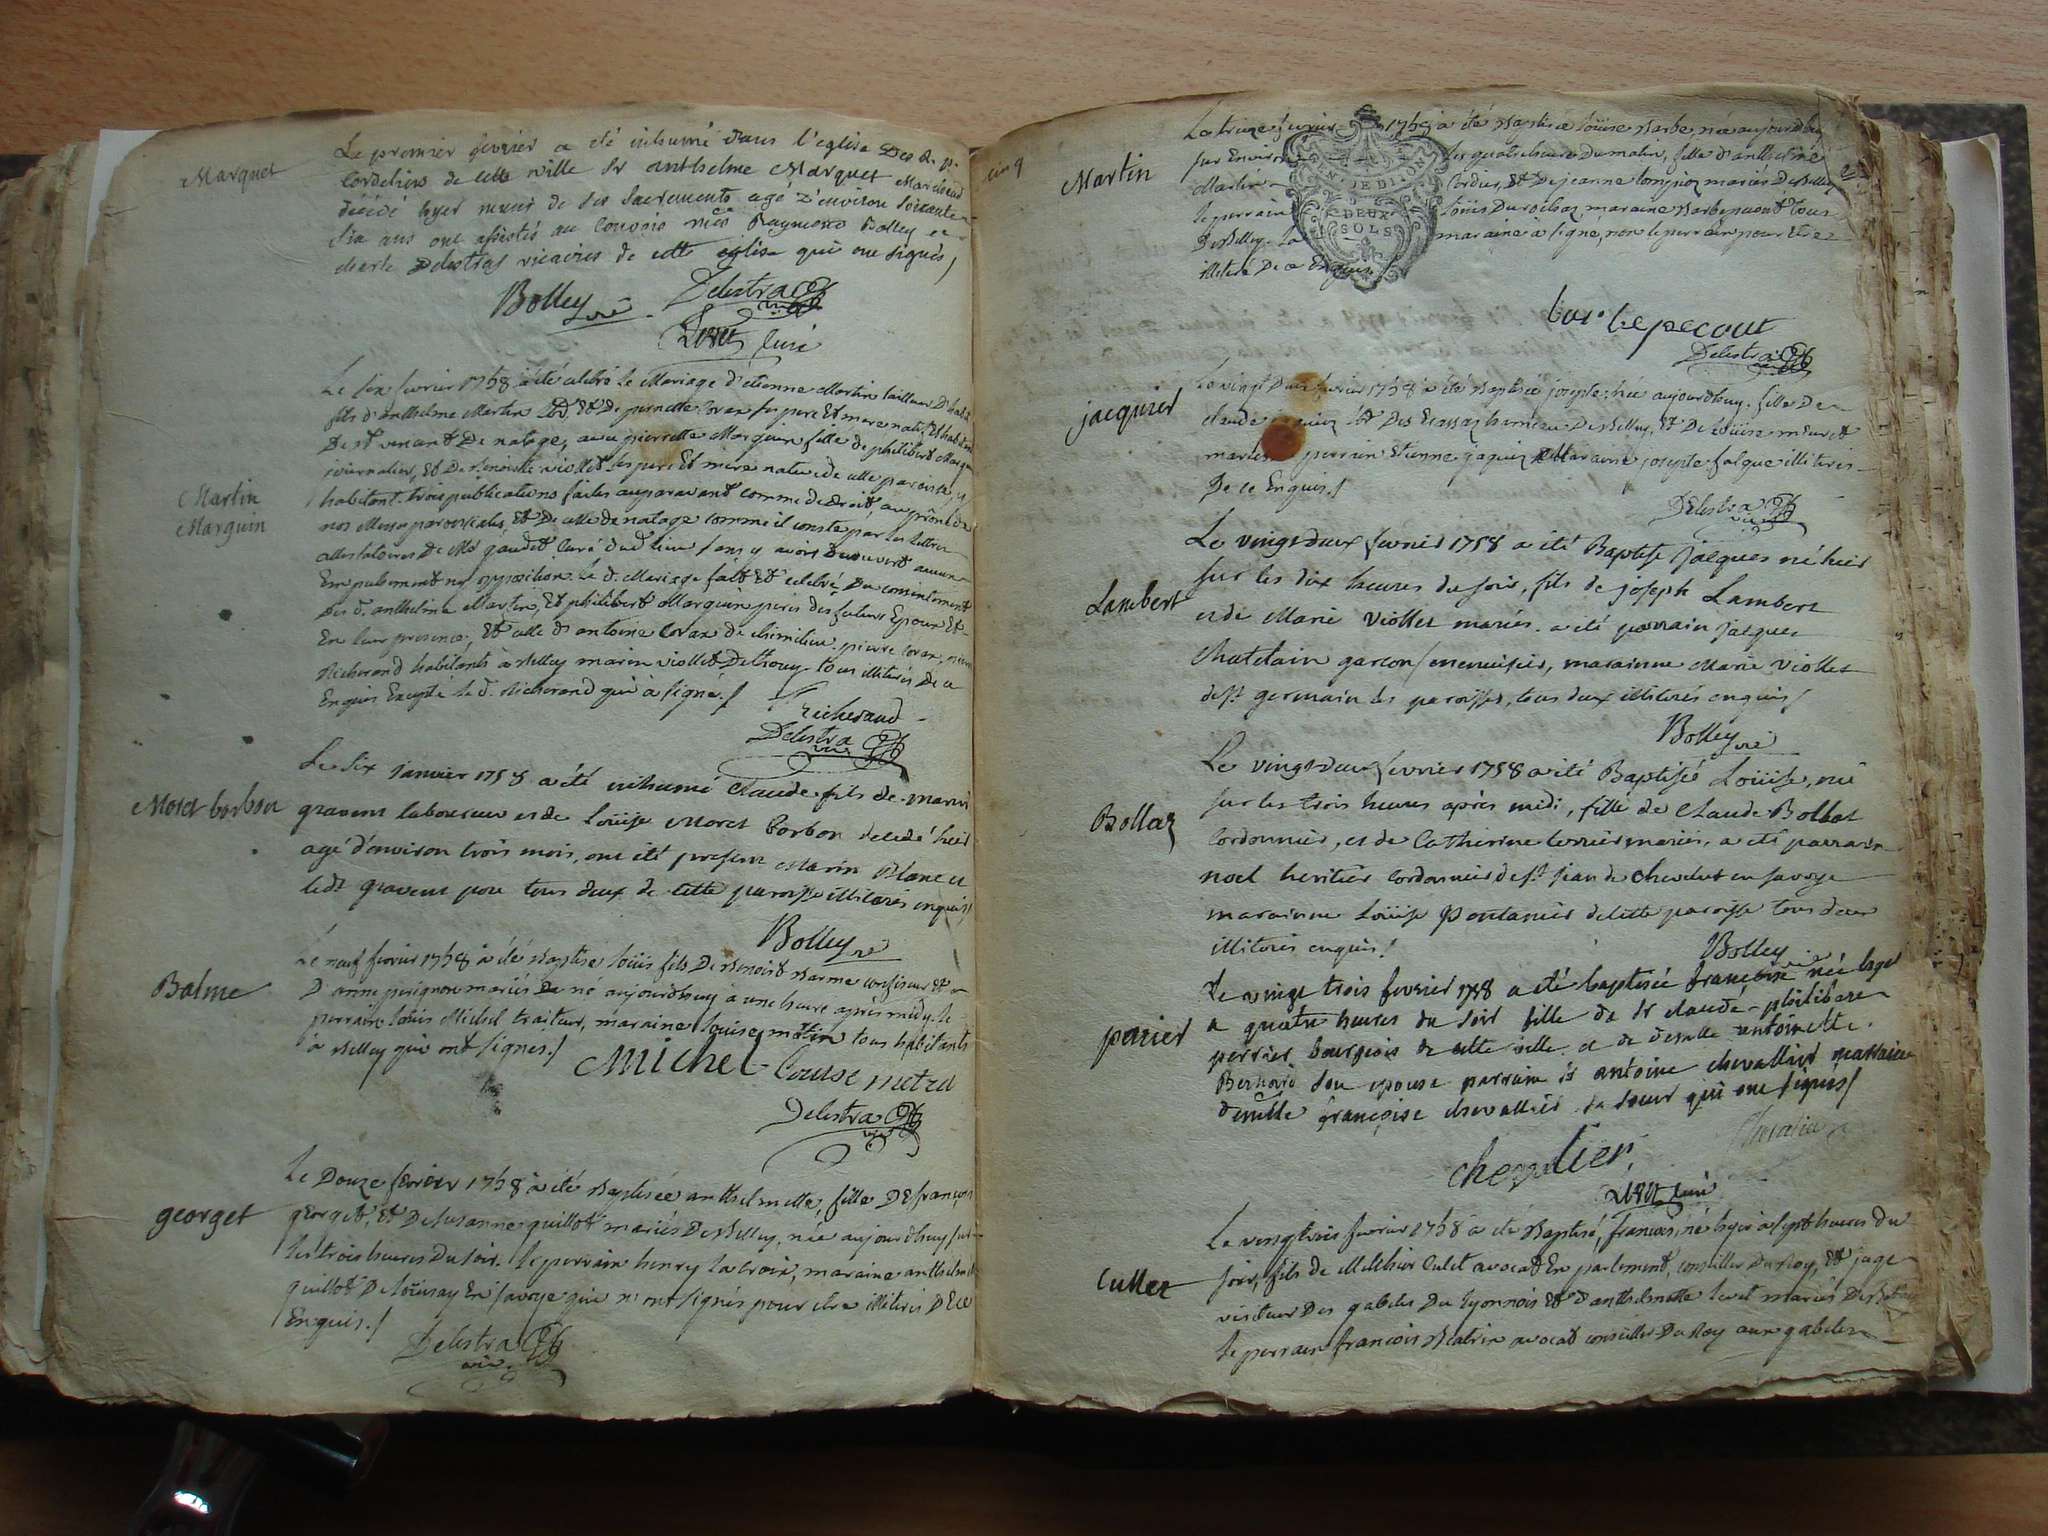 Marquet
Le premier fevrier a été inhumé dans l'eglise des R. P.
Cordeliers de cette ville Sr anthelme Marquet Marchand
décédé hyer muni de ses Sacrements agé d'environ soixante
dix ans ont assistés au Convois Raymond Bolley et
charle Delestraz vicaires de cette eglise qui ont signés /
Bolley vic. Delestra vic.
curé
Martin
Marguin
Le six fevrier 1758 à été celebré le Mariage d'étienne Martin tailleur d'habit
fils d'anthelme Martin et de pernette Coraz ses pere Et mere natif Et habitant
De st vincent De natage, avec pierrette Marguin fille de philibert Marguin
journalier, Et De Benoiste viollet ses pere Et mere native de cette paroisse, y
habitant. trois publications faites auparavant comme de droit, au prône de
nos Messes paroissiales, Et De celle de natage comme il conste par les lettres
attestatoires De Mre gaudet Curé dud. lieu sans y avoir Decouvert aucun
Empechement ny opposition. le d. Mariage fait Et celebré Du consentement
Des d. anthelme Martin, Et philibert Marguin peres des futurs Epoux Et
En leur presence, Et celle d'antoine Coraz de chimilieu, pierre Coraz,
Richerand habitants à Belley marin viollet De thouy tous illiterés De ce
Enquis Excepté le d. Richerand qui à signé. /
richerand
Delestra vic.
Moret borbon
Le Six janvier 1758 a été inhumé Claude fils de marin
gravent laboureur et de Loüise Moret borbon decedé hier
agé d'environ trois mois, ont été presens Marin Blanc et
ledt gravent pere tous deux de cette paroisse illiterés enquis /
Bolley vic.
Balme
Le neuf fevrier 1758 à été Baptisé loüis fils De Benoist Barme confiseur et
D'anne perignon mariés né aujourdhuy à une heure après midy. le
perrain loüis Michel traiteur, maraine louise métin tous habitants
à Belley qui ont signés. /
MICHEL Louise metra
Delestra vic.
georget
Le Douze fevrier 1758 à été Baptisée anthelmette, fille De françois
georget, Et De Susanne guillot mariés De Belley, née aujourdhuy sur
les trois heures du soir. le perrain henry la croix, maraine anthelmette
guillot De loüisay En savoye qui n'ont signés pour être illiterés De ce
Enquis. /
Delestra vic.
cinq
Martin
Le treize fevrier 1758 à été Baptisée loüise Barbe, née aujourdhuy
sur Environ les quatre heures du matin, fille d'anthelme
Martin Cordier, Et De jeanne tompion mariés De Belley
le perrain loüis Duroilaz, maraine Barbe pecout tous
De Belley. la maraine à signé, non le perrain pour Etre
illiteré De ce Enquis. /
GEN. DE DIJON
DEUX
SOLS
barbe pecout
Delestra
jacquier
Le vingt Deux fevrier 1758 à été Baptisée josepte, née aujourdhuy. fille De
claude jaquier Et Des Ecassaz hameau De Belley, Et De loüise meuret
mariés perrain Etienne jaquier Maraine josepte falque illiterés
De ce Enquis. /
Delestra vic.
Lambert
Le vingt deux fevrier 1758 a été Baptisé jacques né hier
sur les dix heures du soir, fils de joseph Lambert
et de Marie Viollet mariés. a été parrain jacques
Chatelain garcon menuisier, marainne Marie Viollet
de st germain les paroisses, tous deux illiterés enquis /
Bolley vic.
Bollaz
Le vingt deux fevrier 1758 a été Baptisée Loüise, né
sur les trois heures après midi, fille de Claude Bollat
Cordonnier, et de Catherine terrier mariés, a été parrain
noel heritier cordonnier de st. jean de chevelut en savoye
marainne Loüise Pontanier de cette paroisse tous deux
illiterés enquis /
Bolley vic.
perier
Le vingt trois fevrier 1758 a été baptisée françoise née hyer
a quatre heures du soir fille de Sr claude-philibert
perrier bourgeois de cette ville et de demelle antoinette
Bernard son epouse parrain Sr antoine chevallier marraine
demelle françoise chevallier sa soeur qui ont signés /
chevalier
curé
Cullet
Le vingt trois fevrier 1758 à été Baptisé, françois, né hyer à sept heures du
soir, fils de Melchior Culet avocat En parlement, conseiller Du Roy, Et juge
visiteur Des gabelles Du lyonnois Et d'anthelmette mariés De Belley
le perrain françois avocat conseiller Du Roy aux gabelles